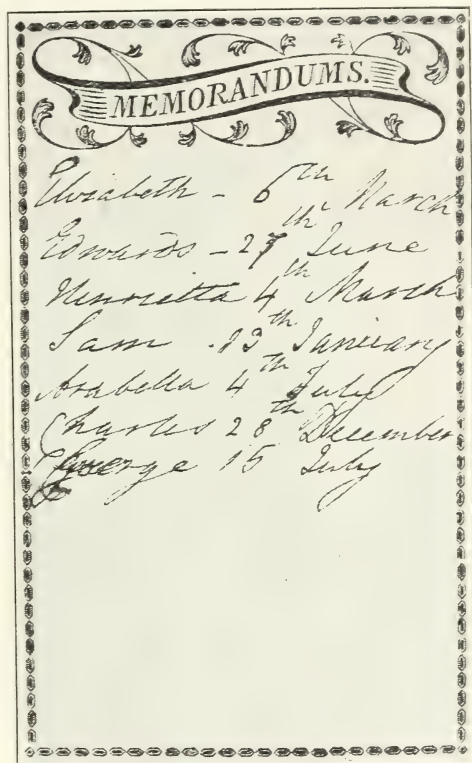 MEMORANDUMS.
Elizabeth - 6th March
Edwards - 27th June
Henrietta 4th March
Sam . 13th January
Arabella 4th July
Charles 28th December
George 15 July